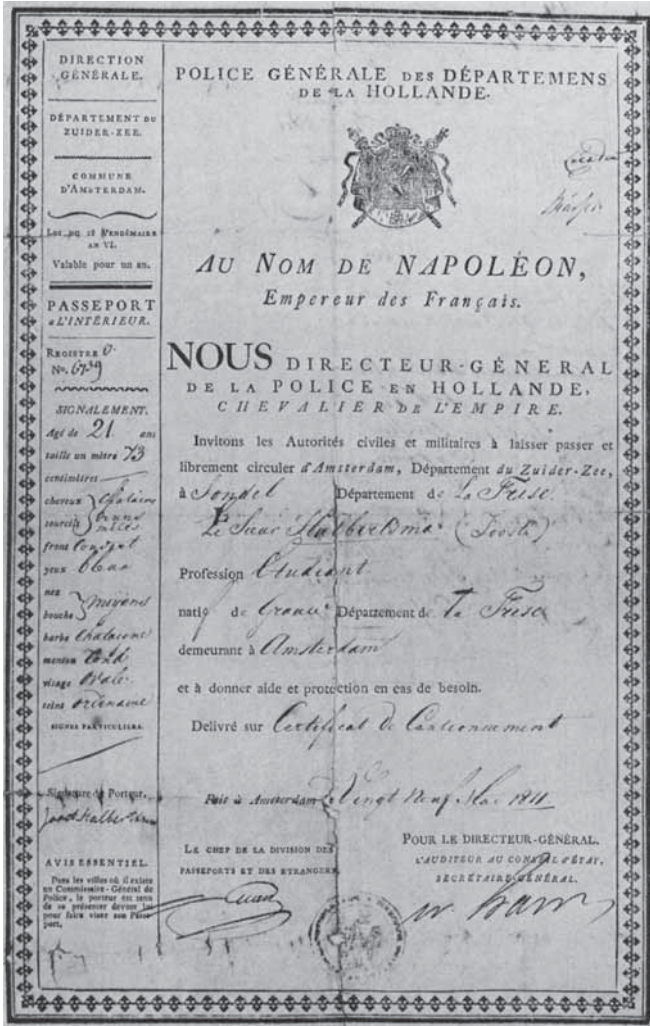 DIRECTION
GÉNÉRALE.
DÉPARTEMENT DU
ZUIDER-ZEE.
COMMUNE
D'AMSTERDAM.
LOI DU 18 VENDÉMIAIRE
AN VI.
Valable pour un an.
PASSEPORT
à L'INTÉRIEUR.
REGISTRE
No. 6739
SIGNALEMENT.
Agé de 21 ans
taille un mètre 73
centimètres
cheveux chataine
sourcils
front
yeux bleu
nez
bouche moyens
barbe chataine
menton rond
visage Ovale
teint ordinaire
SIGNES PARTICULIERS.
Signature du Porteur.
AVIS ESSENTIEL.
Dans les villes où il existe
un Commissaire-Général de
Police, le porteur est tenu
de se présenter devant lui
pour faire viser son Passe-
port.
POLICE GÉNÉRALE DES DÉPARTEMENS
DE LA HOLLANDE.
AU NOM DE NAPOLÉON,
Empereur des Français.
NOUS DIRECTEUR-GÉNERAL
DE LA POLICE EN HOLLANDE,
CHEVALIER DE L'EMPIRE.
Invitons les Autorités civiles et militaires à laisser passer et
librement circuler d'Amsterdam, Département du Zuider-Zee,
à Sondel Département de La Frise
Le Sieur Halbertsma (Joost)
Profession Etudiant
natif de Grauw Département de La Frise
demeurant à Amsterdam
et à donner aide et protection en cas de besoin.
Delivré sur Certificat de Cautionnement
Fait à Amsterdam le Vingt Neuf Mai 1811
LE CHEF DE LA DIVISION DES
PASSEPORTS ET DES ETRANGERS,
POUR LE DIRECTEUR-GÉNÉRAL.
L'AUDITEUR AU CONSEIL D'ÉTAT,
SECRÉTAIRE-GÉNÉRAL.